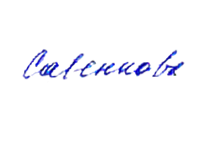 Савенкова